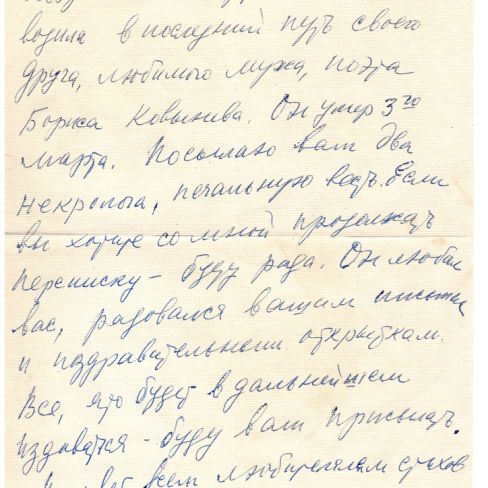 водила в последний путь своего
друга, любимого мужа, поэта
Бориса Ковынева. Он умер 3го
марта. Посылаю вам два
некролога, печальную весть. Если
вы хотите со мной продолжать
переписку - буду рада. Он любил
вас, радовался вашим письмам
и поздравительным открыткам.
Все, что будет в дальнейшем
издаваться - буду вам присылать.
всем любителям стихов